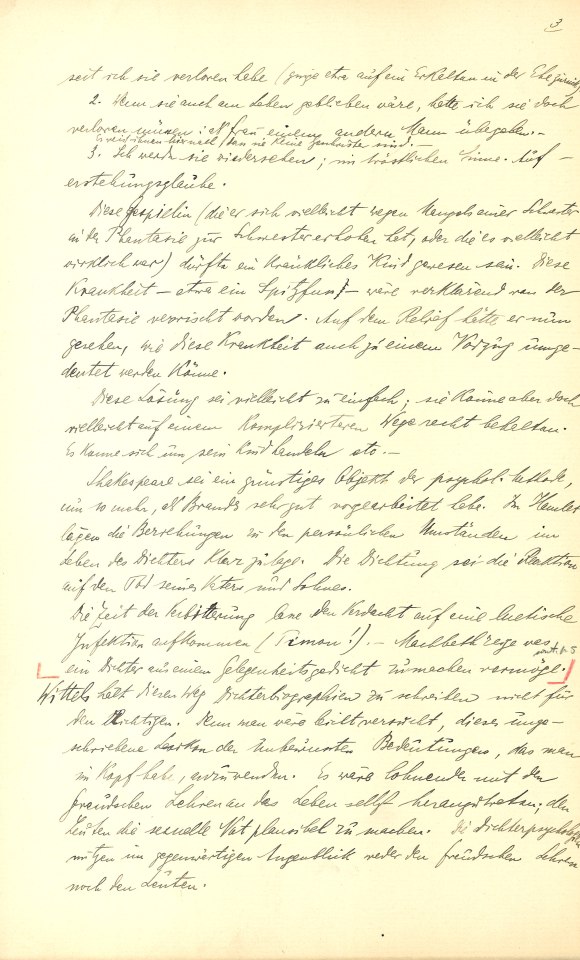 3
seit ich sie verloren habe (ginge etwa auf ein Erkalten in der Ehe zurück)
2. Wenn sie auch am Leben geblieben wäre, hätte ich sie doch
verloren müssen: als Frau einem andern Mann übergeben.—
dass sie keine Geschwister sind.—
3. Ich werde sie wiedersehen; im tröstlichen Sinne. Auf-
erstehungsglaube.
Diese Gespielin (die er sich vielleicht wegen Mangels einer Schwester
in der Phantasie zur Schwester erhoben hat, oder die es vielleicht
wirklich war) dürfte ein kränkliches Kind gewesen sein. Diese
Krankheit – etwa ein Spitzfuss – wäre verklärend von der
Phantasie verwischt worden. Auf dem Relief hätte er nun
gesehen, wie diese Krankheit auch zu einem Vorzug umge-
deutet werden könne.
Diese Lösung sei vielleicht zu einfach; sie könne aber doch
vielleicht auf einem komplizierteren Wege recht behalten.
Es könne sich um sein Kind handeln etc.—
Shakespeare sei ein günstiges Objekt der psychol. Methode,
um so mehr, als Brandes sehr gut vorgearbeitet habe. Im Hamlet
lägen die Beziehungen zu den persönlichen Umständen im
Leben des Dichters klar zutage. Die Dichtung sei die Reaktion
auf den Tod seines Vaters und Sohnes.
Die Zeit der Verbitterung lasse den Verdacht auf eine luetische
Infektion aufkommen (Timon!).— Machbeth zeige was
ein Dichter aus einem Gelegenheitsgedicht zu machen vermöge.
Wittels hält diesen Weg Dichterbiographien zu schreiben nicht für
den Richtigen. Denn man wäre leicht versucht, dieses unge-
schriebene Lexikon der unbewussten Bedeutungen, das man
im Kopf habe, anzuwenden. Es wäre lohnender mit den
freudschen Lehren an das Leben selbst heranzutreten; den
Leuten die sexuelle Not plausibel zu machen. Die Dichterpsychologien
nützen im gegenwärtigen Augenblick weder den freudschen Lehren
noch den Leuten.